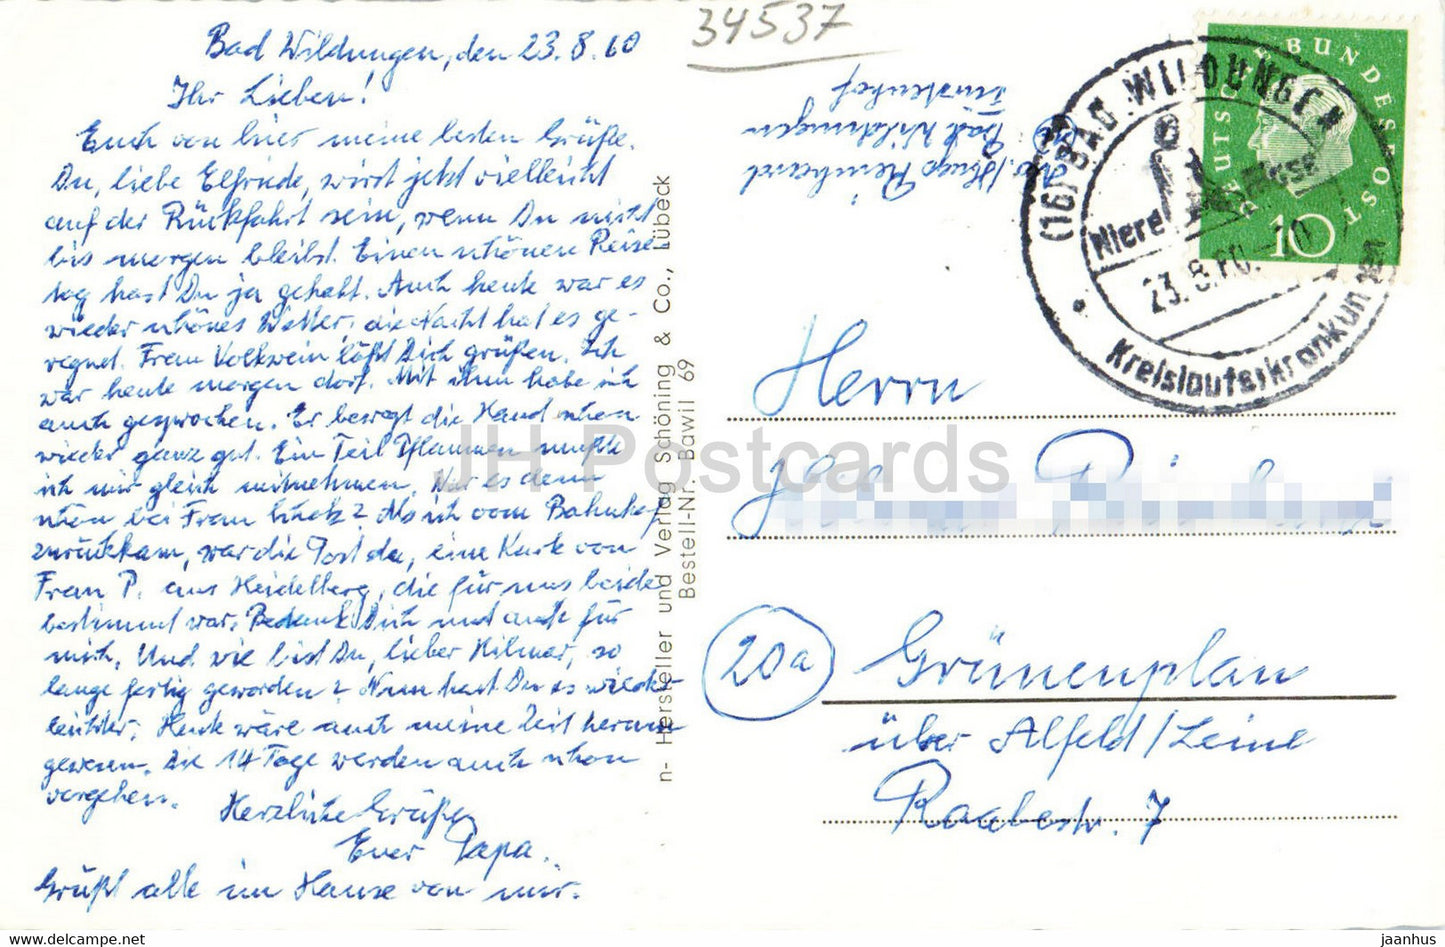 34537
Bad Wildungen, den 23.8.60
Ihr Lieben!
Euch von hier meine besten Grüße.
Du, liebe Elfriede, wirst jetzt vielleicht
auf der Rückfahrt sein, wenn Du nicht
bis morgen bleibst. Einen schönen Reise-
tag hast Du ja gehabt. Auch heute war es
wieder schönes Wetter, die Nacht hat es ge-
regnet. Frau Volkwein läßt Dich grüßen. Ich
war heute morgen dort. Mit ihm habe ich
auch gesprochen. Er bewegt die Hand schon
wieder ganz gut. Ein Teil Pflaumen mußte
ich mir gleich mitnehmen. War es denn
schon bei Frau ? Als ich vom Bahnhof
zurückkam, war die Post da, eine Karte von
Frau P. aus Heidelberg, die für uns beide
bestimmt war. Bedank Dich und auch für
mich. Und wie bist Du, lieber Hilmar, so
lange fertig geworden? Nun hast Du es wieder
leichter. Heute wäre auch meine Zeit herum
gewesen. Die 14 Tage werden auch schon
vergehen.
Herzliche Grüße
Euer Papa.
Grüßt alle im Hause von mir.
n- Hersteller und Verlag Schöning & Co., Lübeck
Bestell-Nr. Bawil 69
Hugo Reinhard
Bad Wildungen
Fürstenhof
(16) BAD WILDUNGEN
Niere Blase
23.8.60.-20
Kreislauferkrankungen
DEUTSCHE BUNDESPOST
10
Herrn
(20a) Grünenplan
über Alfeld/Leine
Raabestr. 7
JH Postcards
www.jaanhus.com
jaanhus